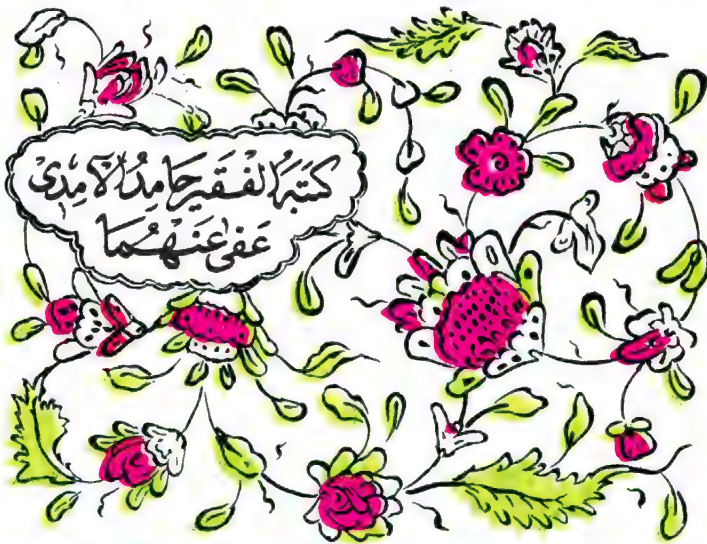 كتبه الفقير حامد الآمدي
عفى عنهما